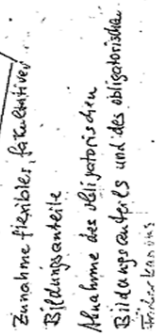 Zunahme flexibler, fakultativer
Bildungsanteile
Abnahme des obligatorischen
Bildungsanteils und des obligatorischen